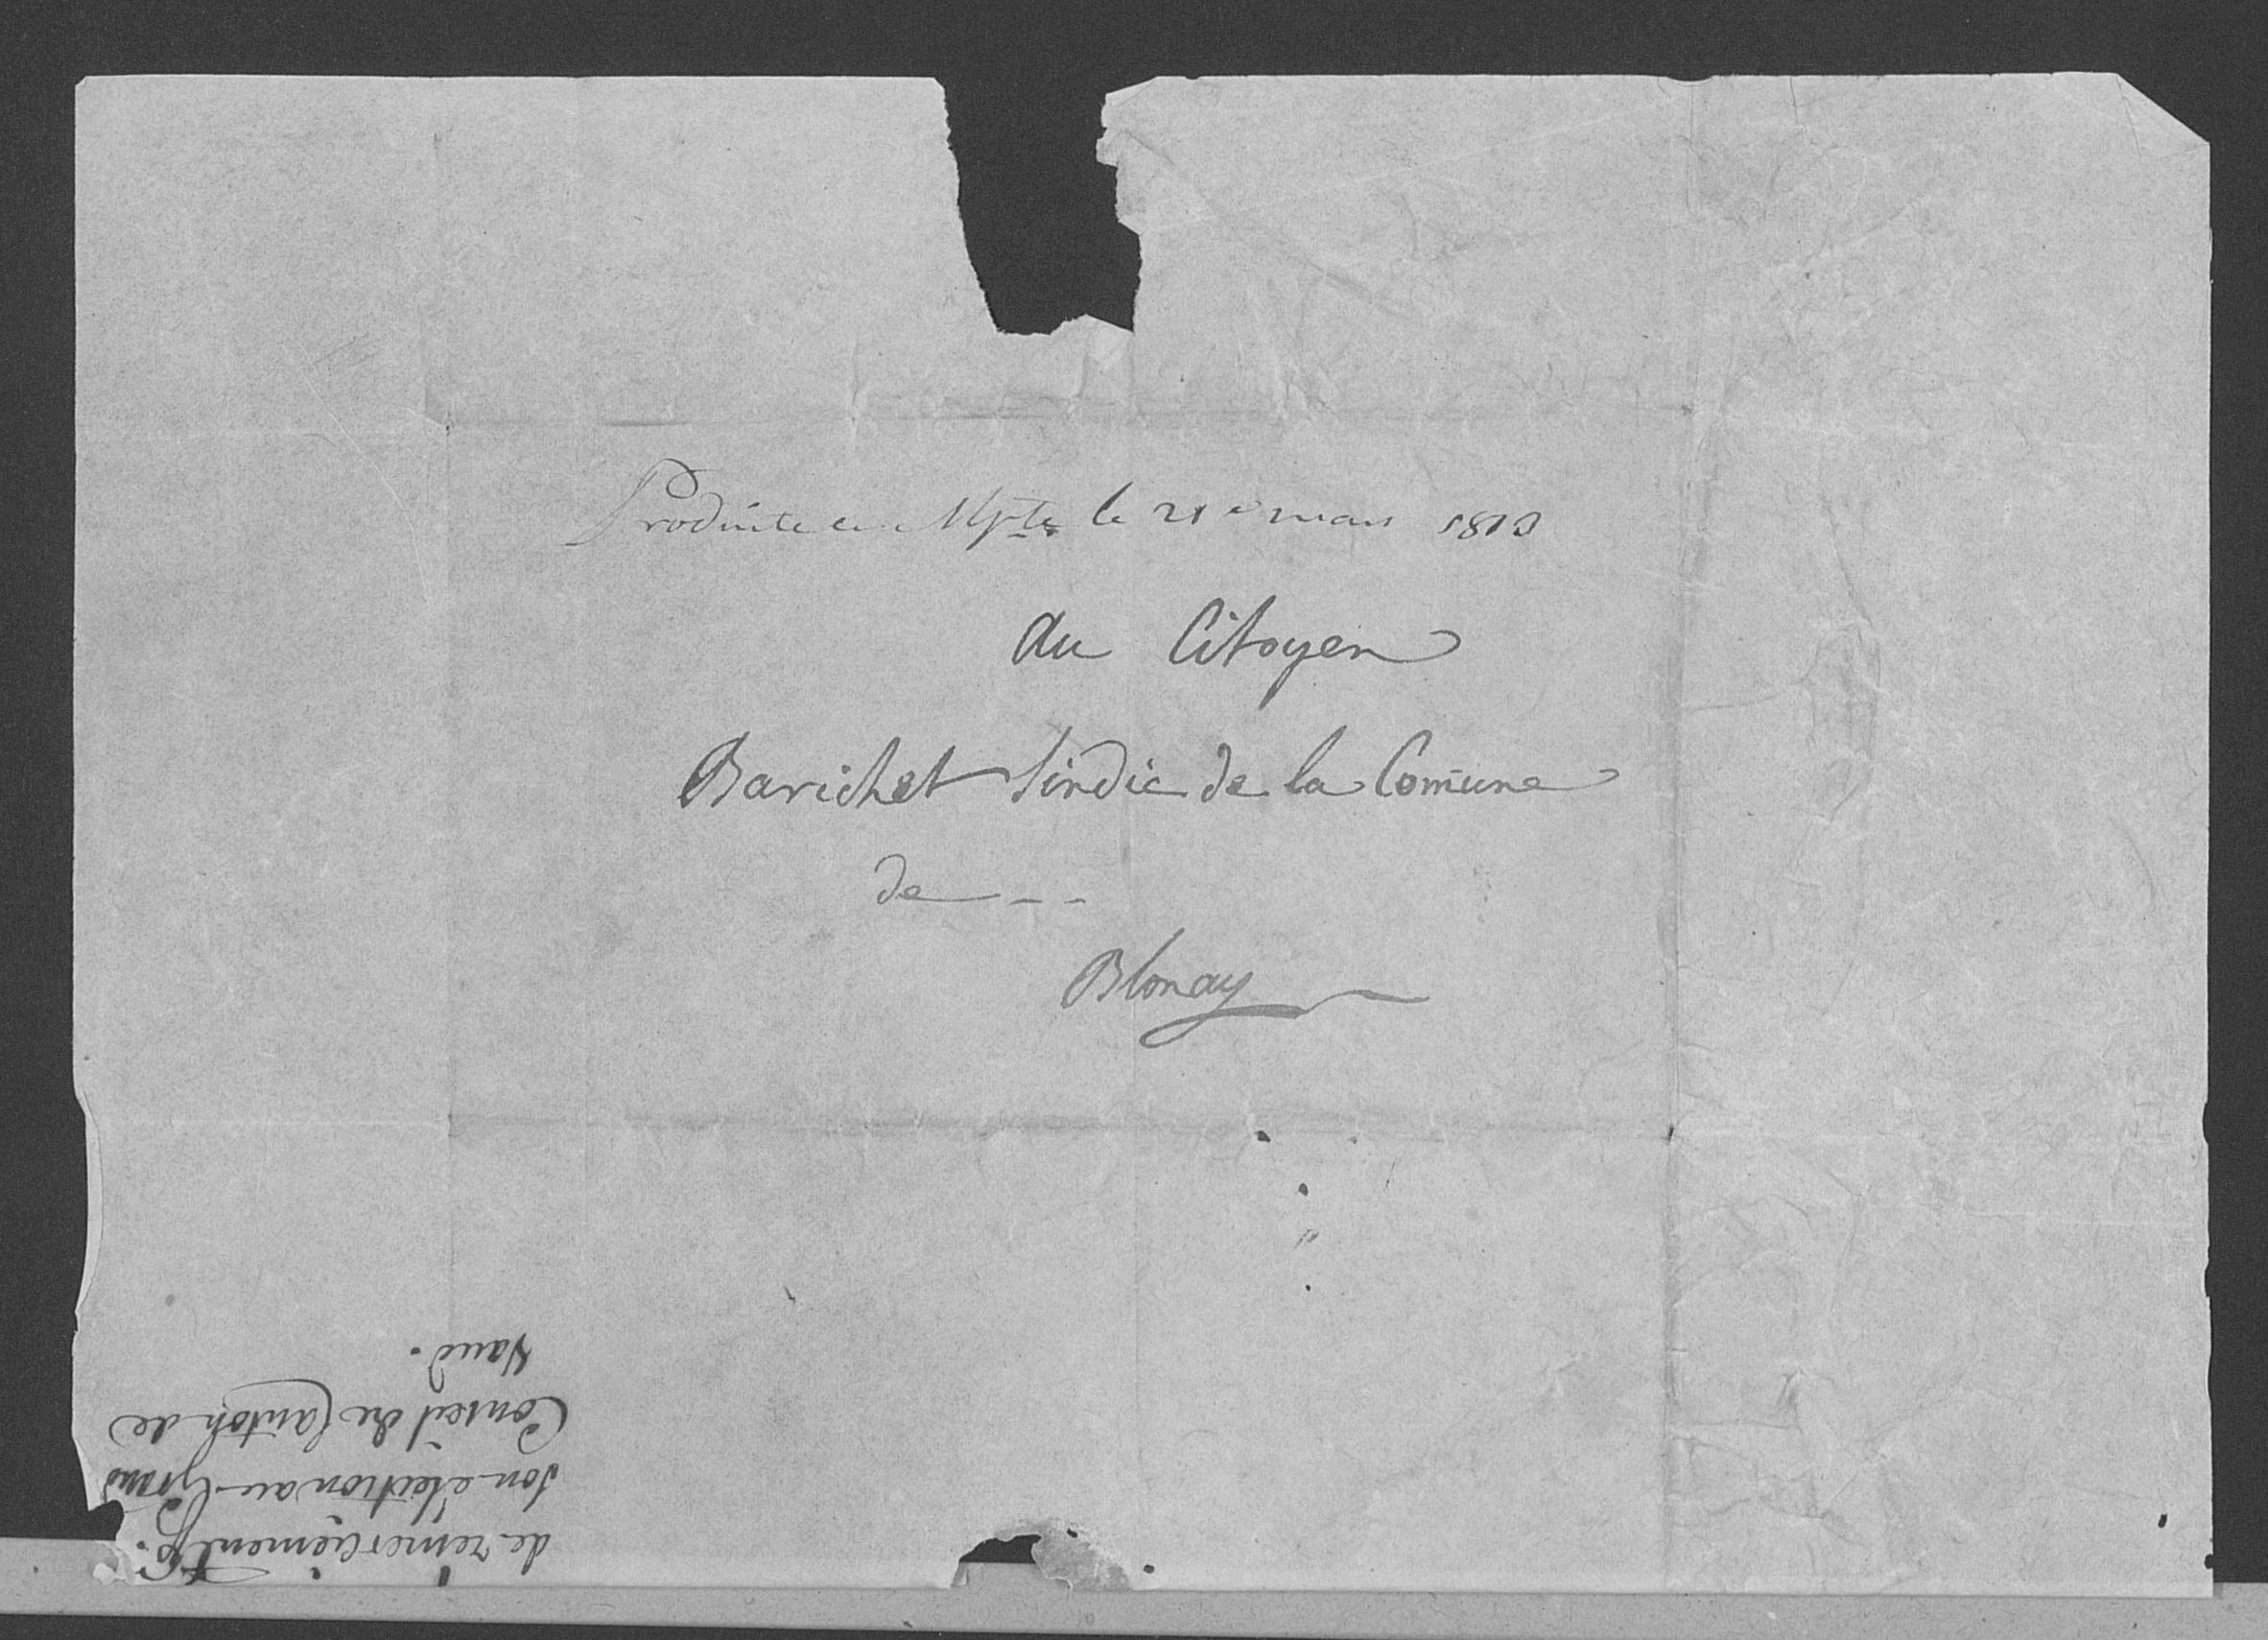 Produite en Mpté le 21e mars 1813
Au Citoyen
Barichet Sindic de la Comune
de - -
Blonay
de remerciement p.
son élection au Grand
Conseil du Canton de
Vaud.